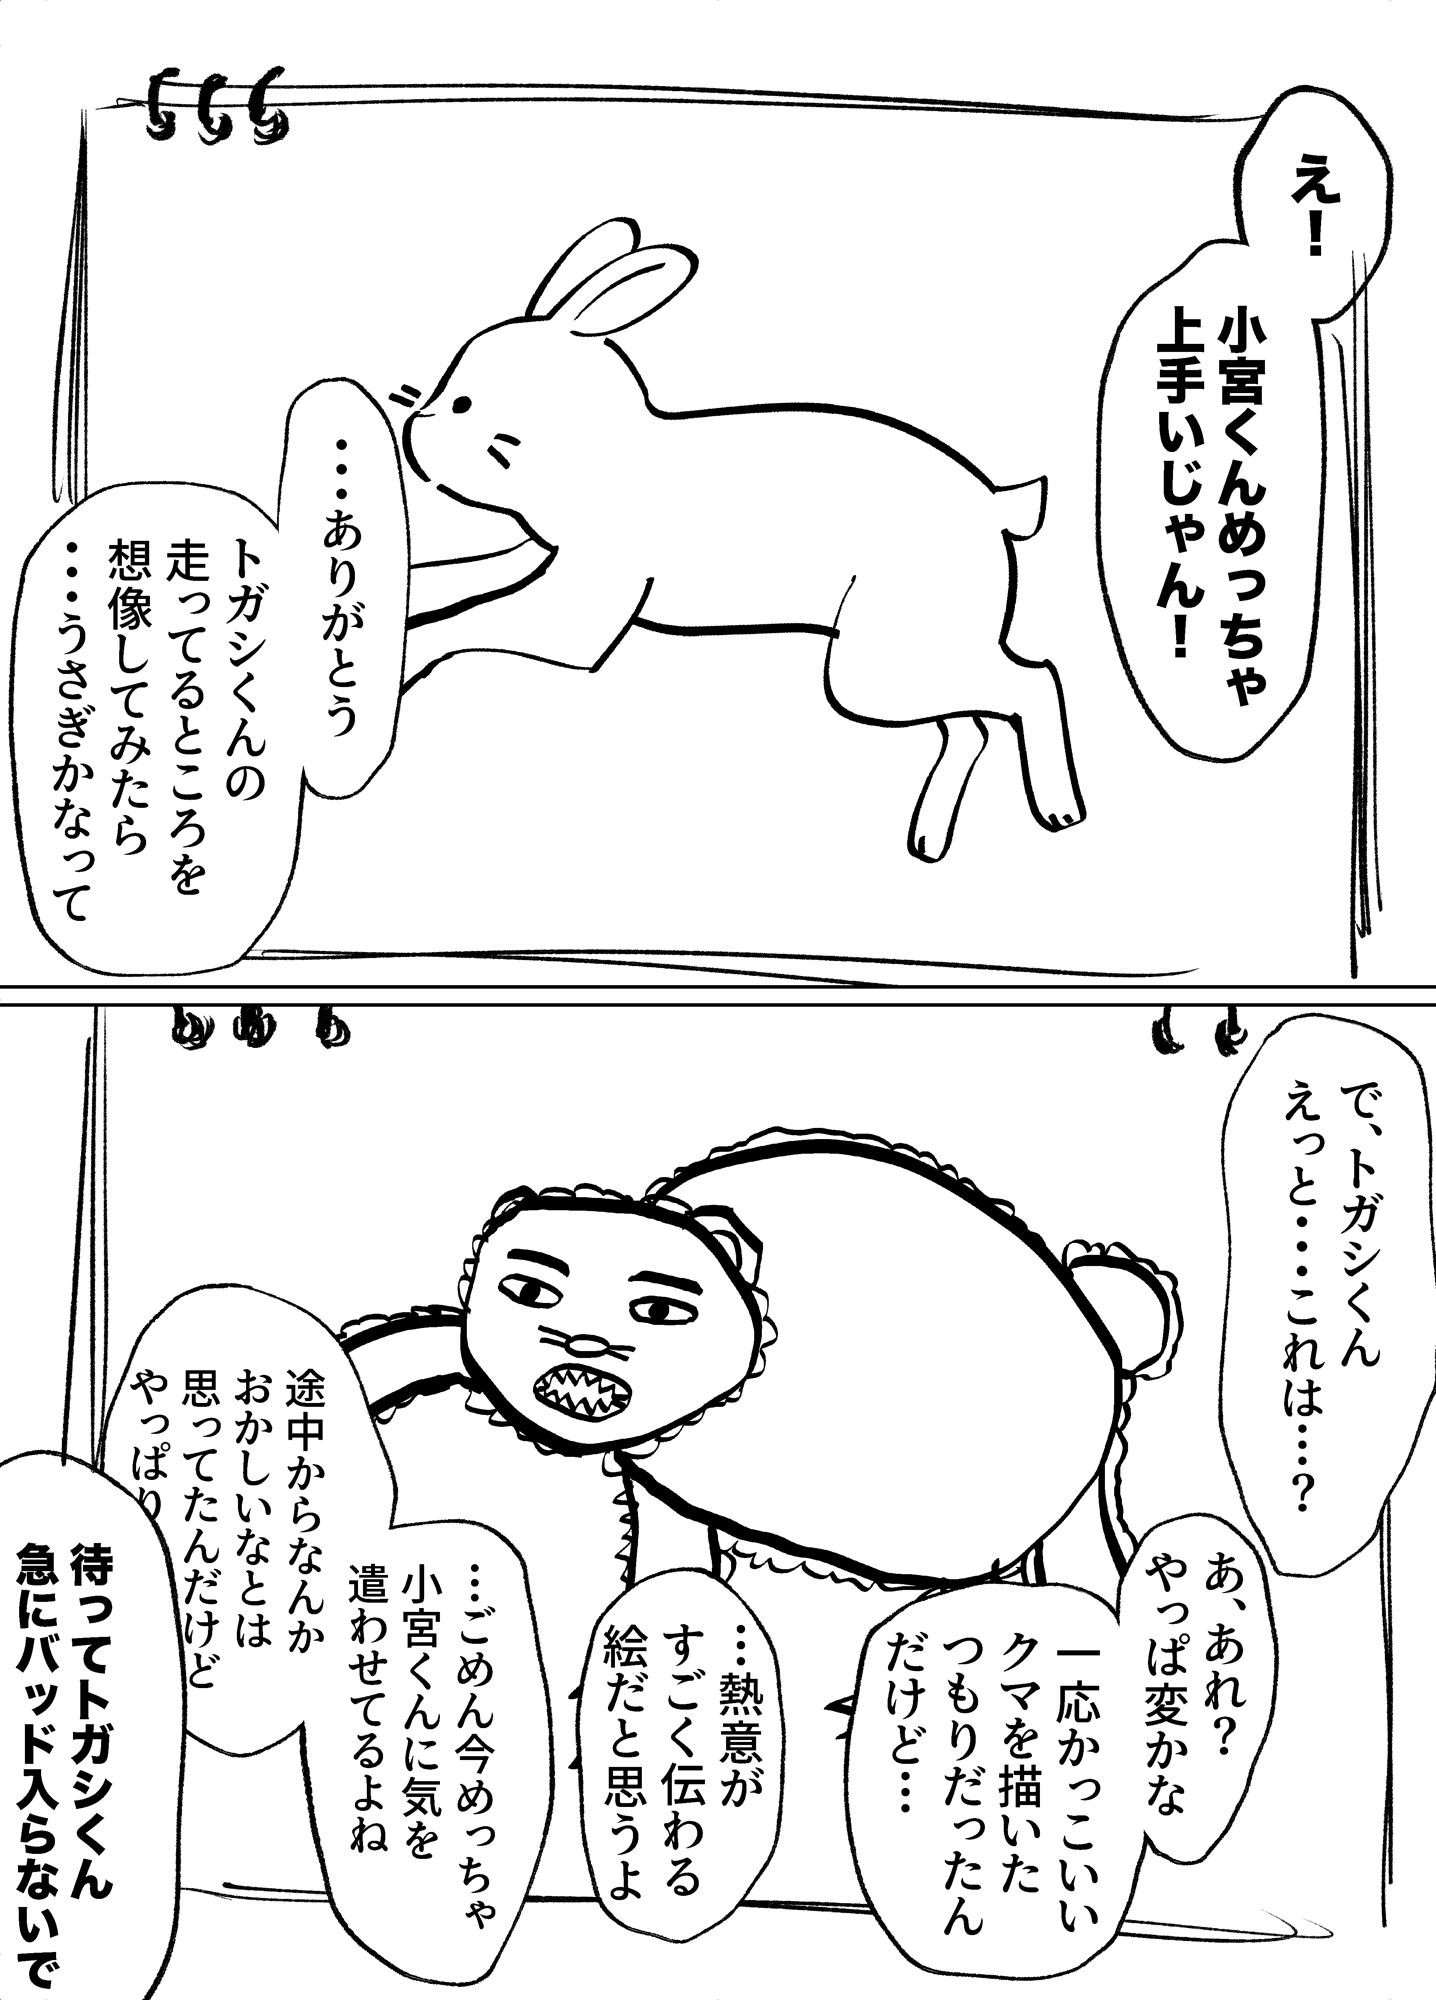 え！
小宮くんめっちゃ
上手いじゃん！
・・・ありがとう
トガシくんの
走ってるところを
想像してみたら
・・・うさぎかなって
で、トガシくん
えっと・・・これは…？
あ、あれ？
やっぱ変かな
一応かっこいい
クマを描いた
つもりだったん
だけど…
…熱意が
すごく伝わる
絵だと思うよ
…ごめん今めっちゃ
小宮くんに気を
遣わせてるよね
途中からなんか
おかしいなとは
思ってたんだけど
やっぱり
待ってトガシくん
急にバッド入らないで